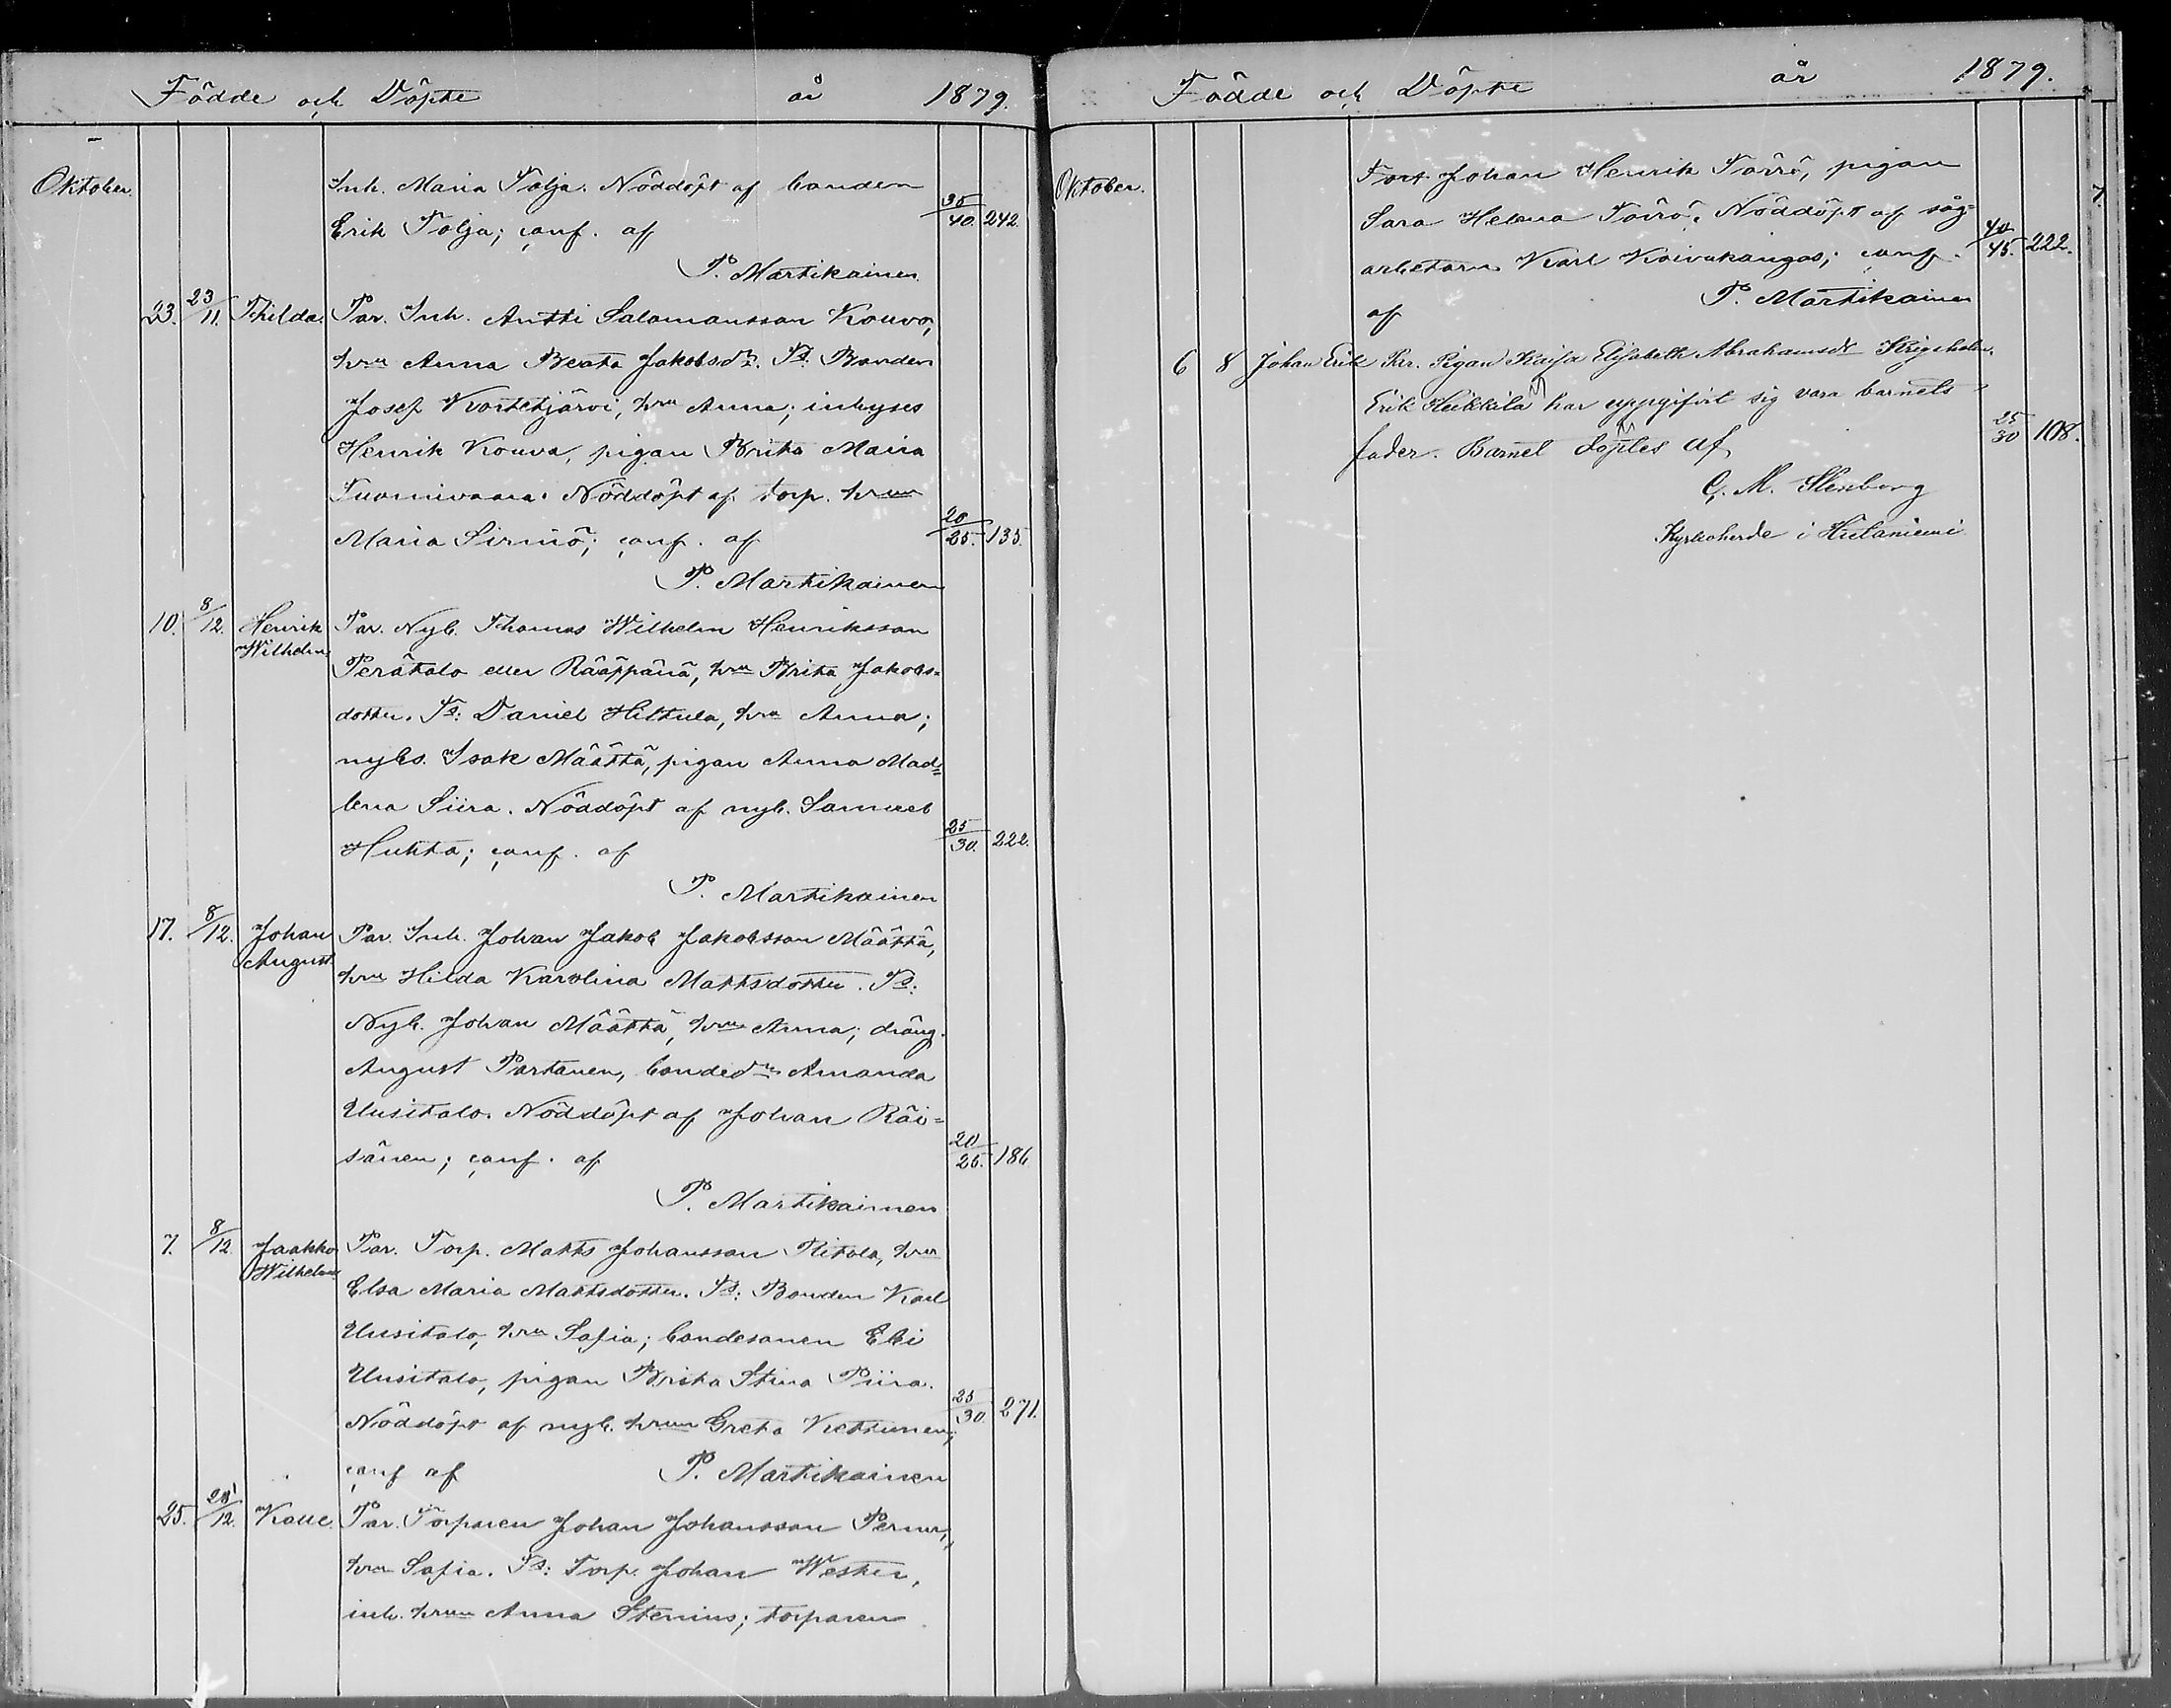 Födde och Döpte år 1879.
Oktober.
Inh. Maria Tolja. Nöddöpt af bonden
Erik Tolja; conf. af 35/40. 242.
P. Martikainen
23. 23/11. Thilda. Par. Inh. Antti Salomonsson Kouva,
hru Anna Beata Jakobsdr. Ts. Bonden
Josef Kortetjärvi, hru Anna; inhyses
Henrik Kouva, pigan Brita Maria
Tuomivaara. Nöddöpt af torp. hrun
Maria Sirniö; conf. af 20/25. 135.
P. Martikainen
10. 8/12. Henrik Wilhelm. Par. Nyb. Thomas Wilhelm Henriksson
Perätalo eller Rääppänä, hru Brita Jakobs-
dotter. Ts: Daniel Hiltula, hru Anna;
nybs. Isak Määttä, pigan Anna Mad-
lena Siira. Nöddöpt af nyb. Samuel
Hukka; conf. af 25/30. 222.
P. Martikainen
17. 8/12. Johan August. Par. Inh. Johan Jakob Jakobsson Määttä,
hru Hilda Karolina Mattsdotter. Ts:
Nyb. Johan Määttä, hru Anna; dräng.
August Partanen, bondedr Amanda
Uusitalo. Nöddöpt af Johan Räi-
sänen; conf. af 20/25. 186
P. Martikainen
7. 8/12 Jaakko Wilhelm Par. Torp. Matts Johansson Pitola, hru
Elsa Maria Mattsdotter. Ts: Bonden Karl
Uusitalo, hru Sofia; bondesonen Eli
Uusitalo, pigan Brita Stina Piira.
Nöddöpt af nyb. hrun Greta Kettunen; 25/30. 271.
conf af P. Martikainen
25. 12. Kalle. Par. Torparen Johan Johansson Pernu,
hru Sofia. Ts: Torp. Johan Wester,
inh. hrun Anna Stenius; torparen
Födde och Döpte år 1879.
Oktober.
Johan Henrik Törrö, pigan
Sara Helena Törrö. Nöddöpt af såg-
arbetaren Karl Koivukangas; conf. 40/45. 222.
af P. Martikainen
6 8 Johan Erik Par. Pigan Kaisa Elisabeth Abrahamsdr
Erik Heikkilä har uppgifvit sig vara barnets
fader. Barnet döptes af 25/30 108.
G. M. Stenborg
Kyrkoherde i Hietaniemi